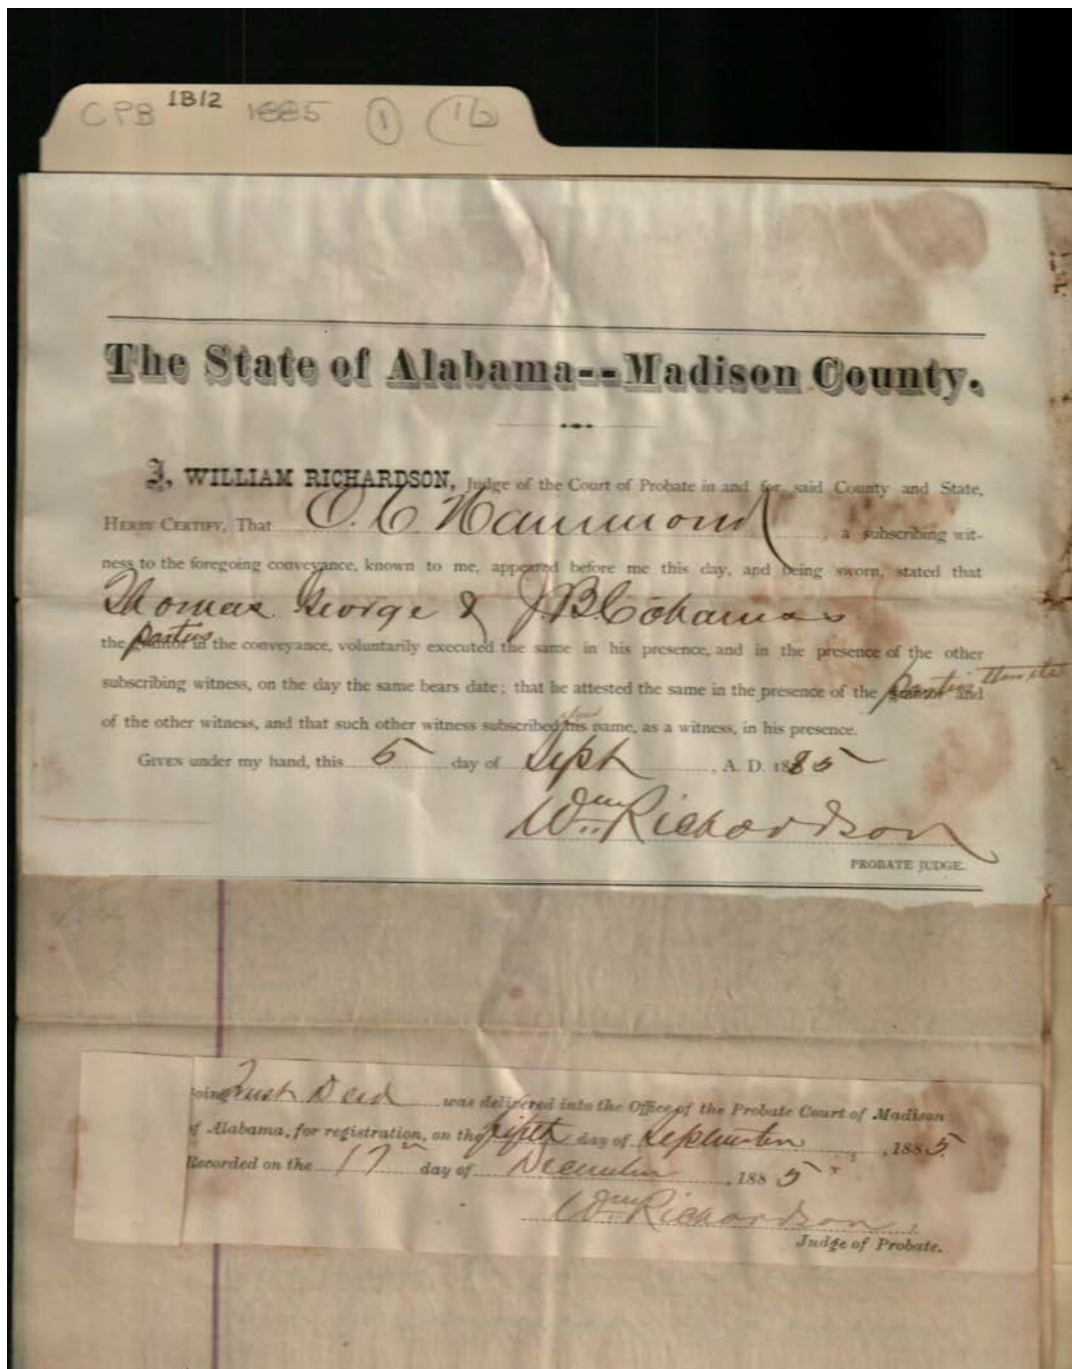 CPB 1B12 1885 1 (1b)
The State of Alabama--Madison County.
I, WILLIAM RICHARDSON, Judge of the Court of Probate in and for said County and State,
HERBY CERTIFY, That O. C. Hammond, a subscribing wit-
ness to the foregoing conveyance, known to me, appeared before me this day, and being sworn, stated that
Thomas George &
the parties in the conveyance, voluntarily executed the same in his presence, and in the presence of the other
subscribing witness, on the day the same bears date; that he attested the same in the presence of the parties thereto and
of the other witness, and that such other witness subscribed his name, as a witness, in his presence.
GIVEN under my hand, this 5 day of Sept, A. D. 1885
Wm Richardson
PROBATE JUDGE.
going Trust Deed was delivered into the Office of the Probate Court of Madison
of Alabama, for registration, on the fifth day of September, 1885
Recorded on the 17th day of December, 1885
Wm Richardson
Judge of Probate.